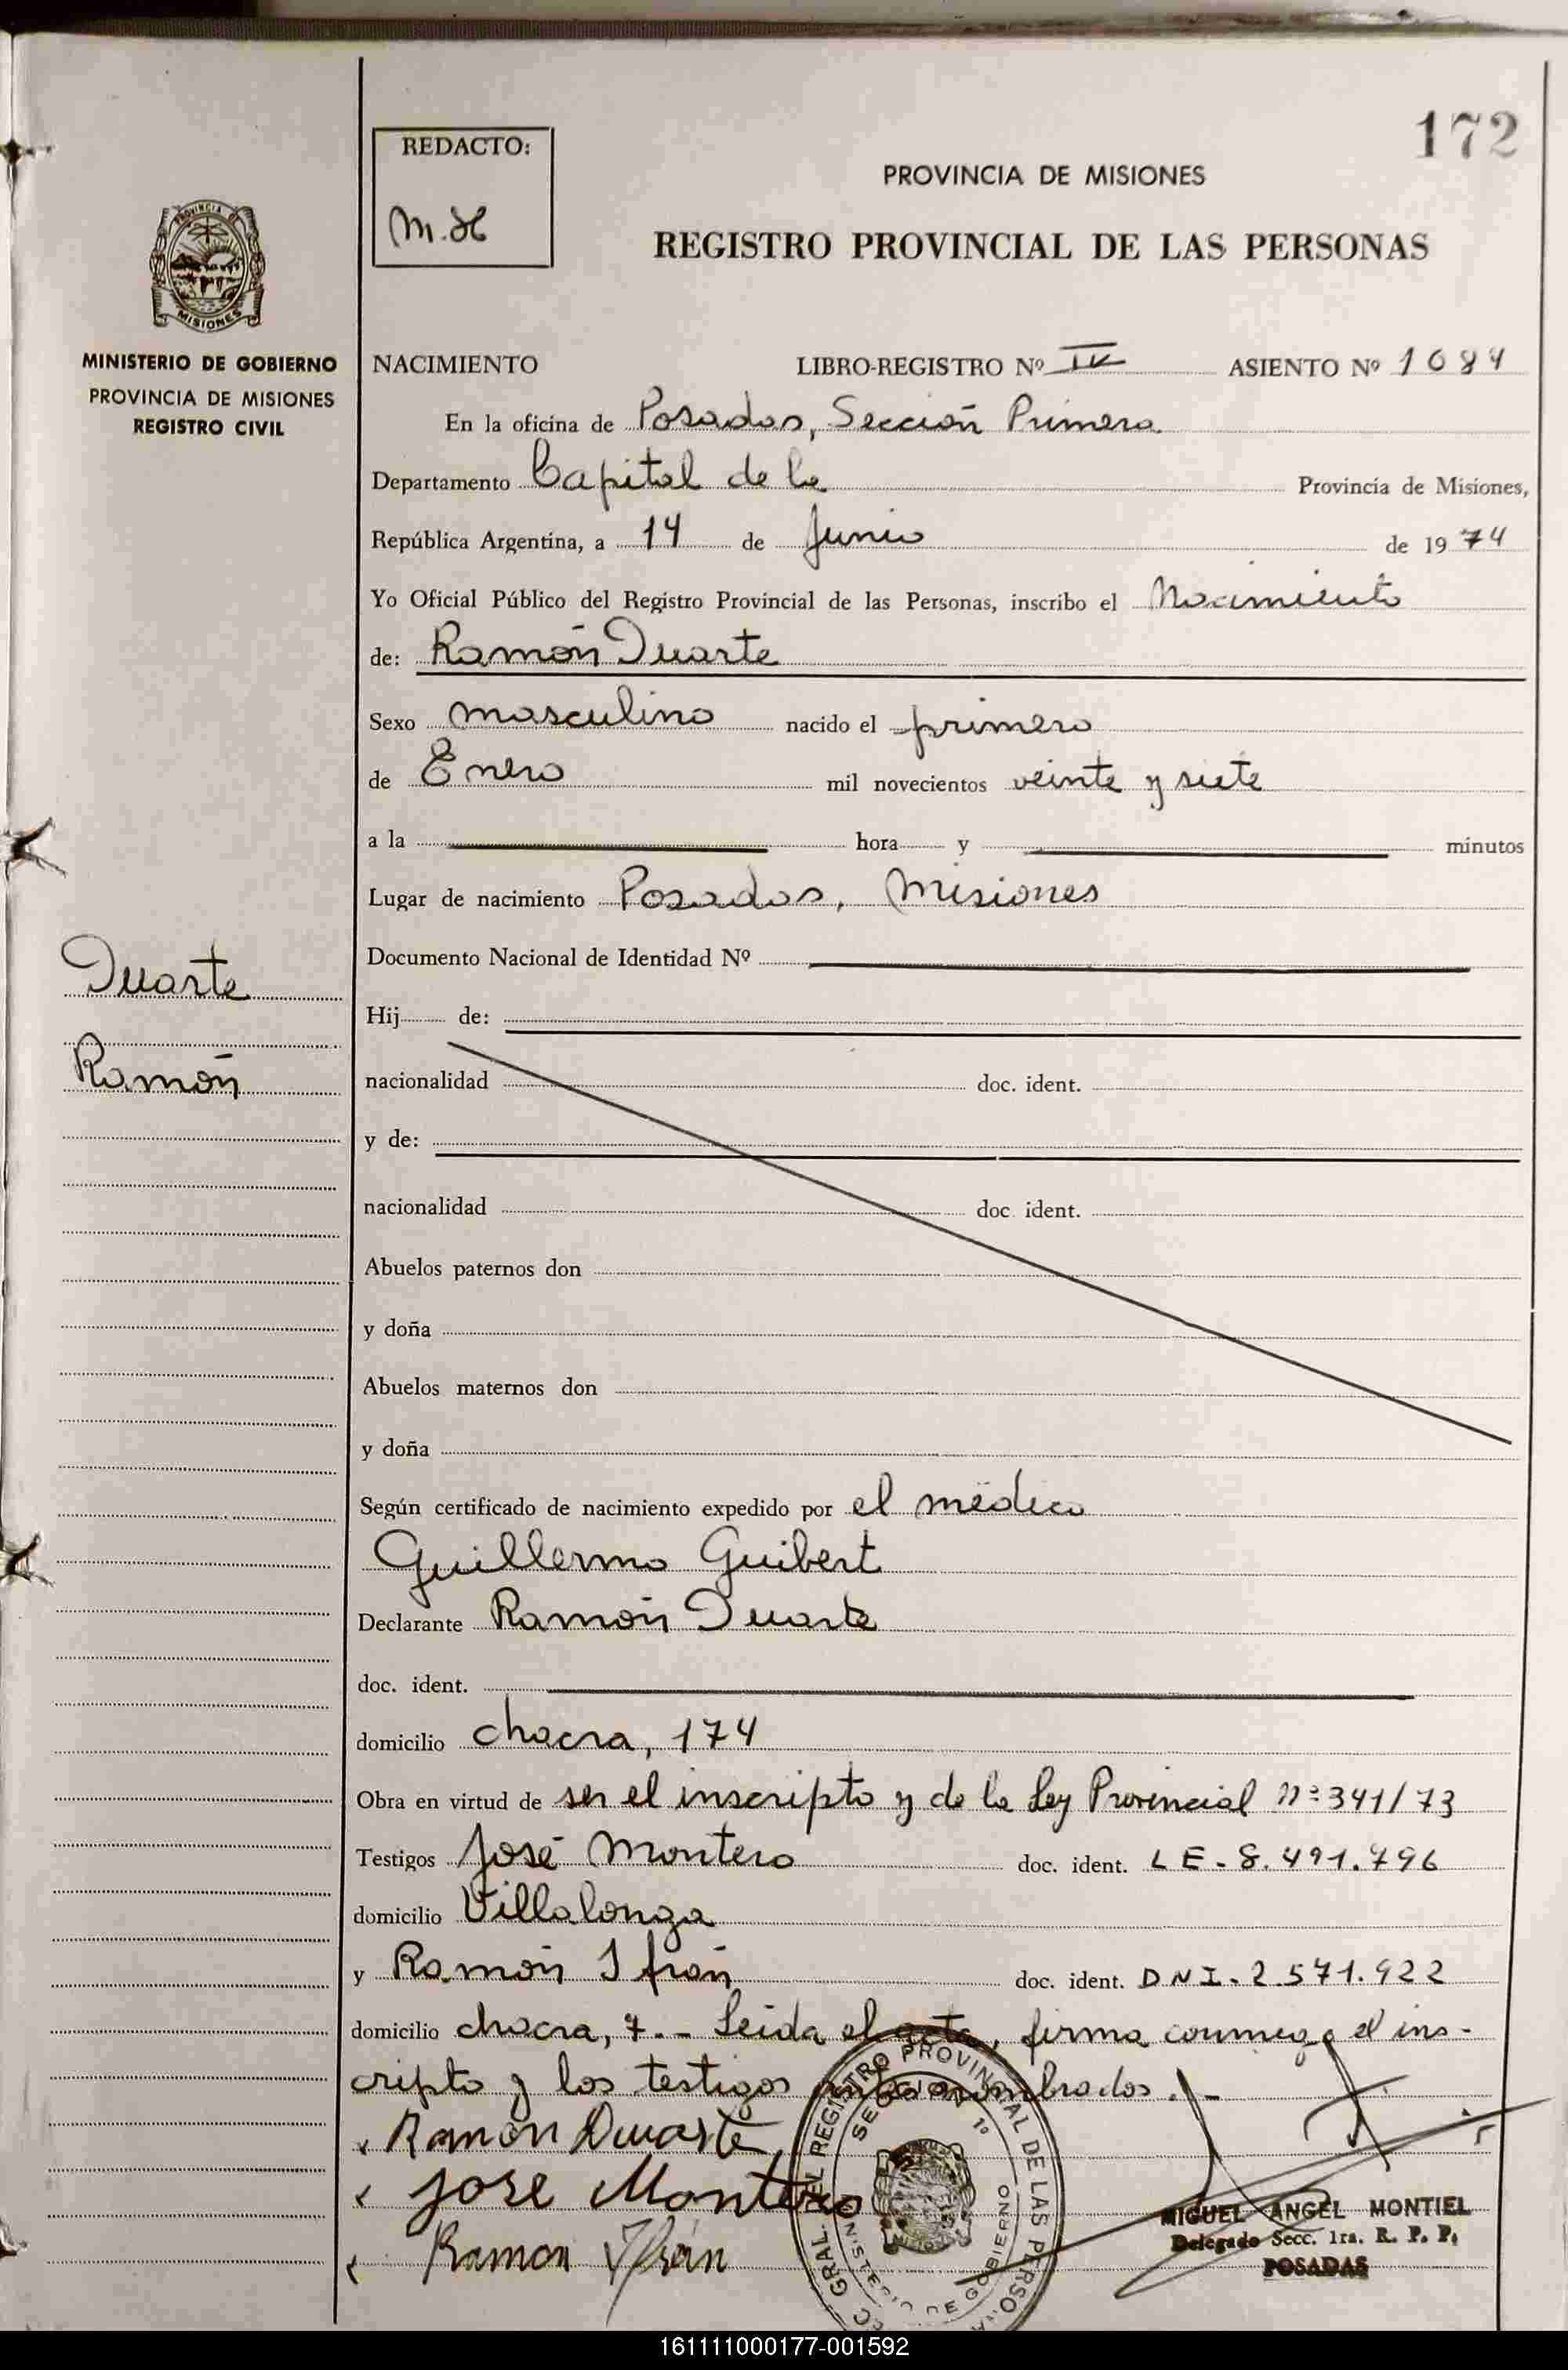 172
REDACTO:
M.H
PROVINCIA DE MISIONES
REGISTRO PROVINCIAL DE LAS PERSONAS
PROVINCIA DE
MISIONES
MINISTERIO DE GOBIERNO
PROVINCIA DE MISIONES
REGISTRO CIVIL
NACIMIENTO LIBRO-REGISTRO Nº IV ASIENTO Nº 1084
En la oficina de Posadas, Sección Primera
Departamento Capital de la Provincia de Misiones,
República Argentina, a 14 de Junio de 1974
Yo Oficial Público del Registro Provincial de las Personas, inscribo el Nacimiento
de: Ramón Duarte
Sexo masculino nacido el primero
de Enero mil novecientos veinte y siete
a la hora y minutos
Lugar de nacimiento Posadas, Misiones
Documento Nacional de Identidad Nº
Duarte
Ramón
Hij de:
nacionalidad doc. ident.
y de:
nacionalidad doc. ident.
Abuelos paternos don
y doña
Abuelos maternos don
y doña
Según certificado de nacimiento expedido por el médico
Guillermo Guibert
Declarante Ramón Duarte
doc. ident.
domicilio chacra, 174
Obra en virtud de ser el inscripto y de la Ley Provincial nº 341/73
Testigos José Montero doc. ident. LE-8.491.796
domicilio Villalonga
y Ramón Ifrán doc. ident. DNI-2.571.922
domicilio chacra, 7.- Leida el acta, firma conmigo el ins-
cripto y los testigos antes nombrados.-
Ramon Duarte
Jose Montero
Ramon Ifrán
GRAL. DEL REGISTRO PROVINCIAL DE LAS PERSONAS
SECCION 1º
MINISTERIO DE GOBIERNO
MIGUEL ANGEL MONTIEL
Delegado Secc. 1ra. R. P. P.
POSADAS
161111000177-001592